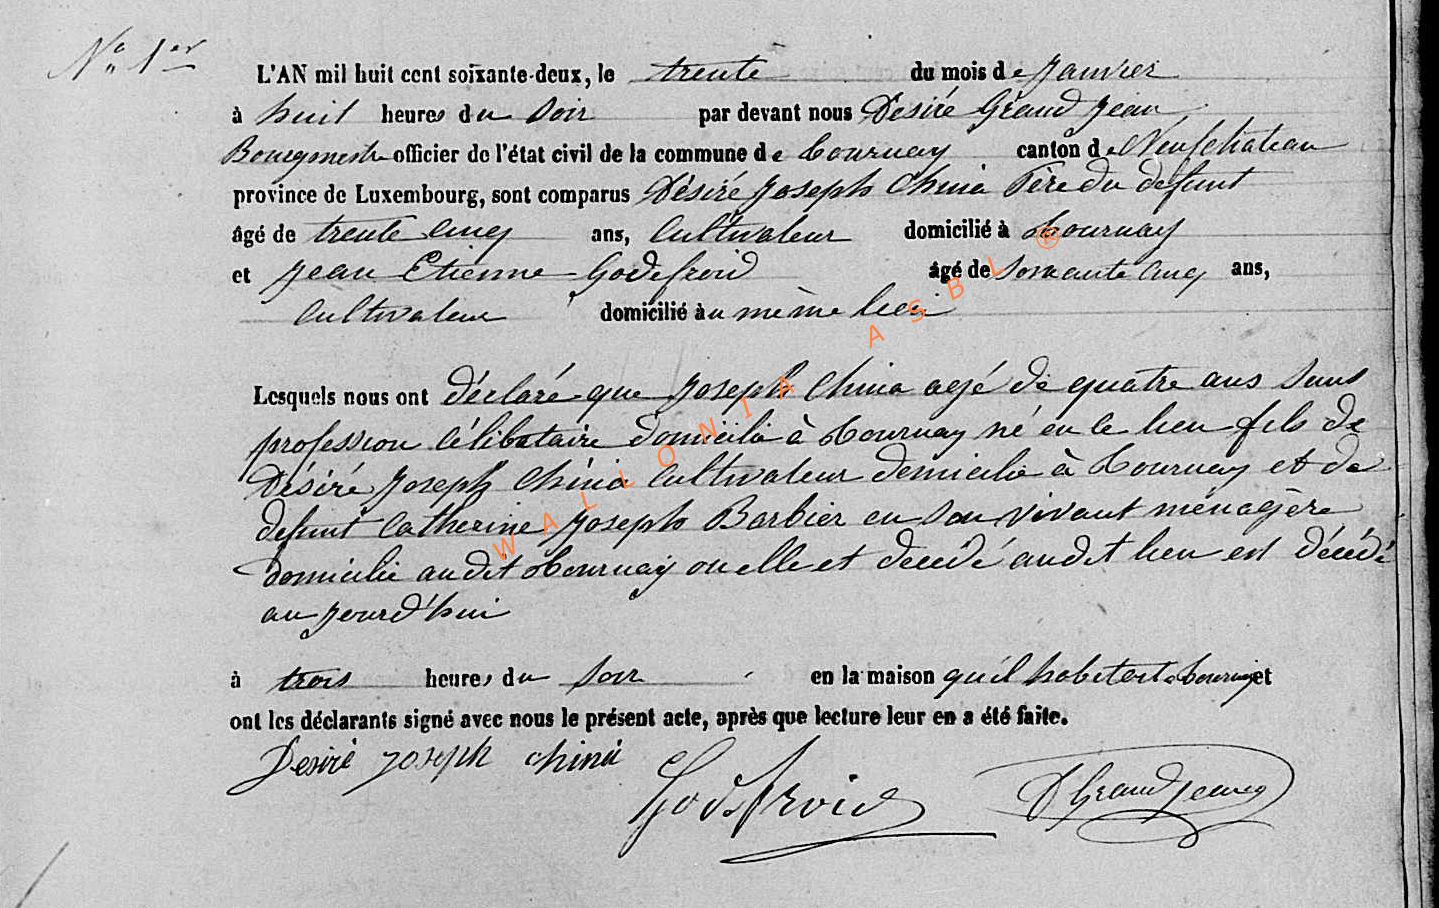 N° 1er
L'AN mil huit cent soixante-deux, le trente du mois de Janvier
à huit heures du Soir par devant nous Desiré Grand Jean
Bourgmestre officier de l'état civil de la commune de Tournay canton de Neufchateau
province de Luxembourg, sont comparus Désiré Joseph Chinà Père du defunt
âgé de trente cinq ans, Cultivateur domicilié à Tournay
et Jean Etienne Godefroid âgé de Soixante cinq ans,
Cultivateur domicilié au même lieu
Lesquels nous ont déclaré que Joseph China agé de quatre ans Sans
profession Célibataire domicilié à Tournay né en ce lieu fils de
Désiré Joseph China Cultivateur domicilié à Tournay et de
defunt Catherine Joseph Barbier en Son vivant ménagère
domicilié audit Tournay ou elle et décédé audit lieu est décédé
aujourd'hui
à trois heures du Soir en la maison qu'il habitait à Tournay et
ont les déclarants signé avec nous le présent acte, après que lecture leur en a été faite.
Desiré Joseph Chinà Godefroid D Grandjean
WALLONIA ASBL ®